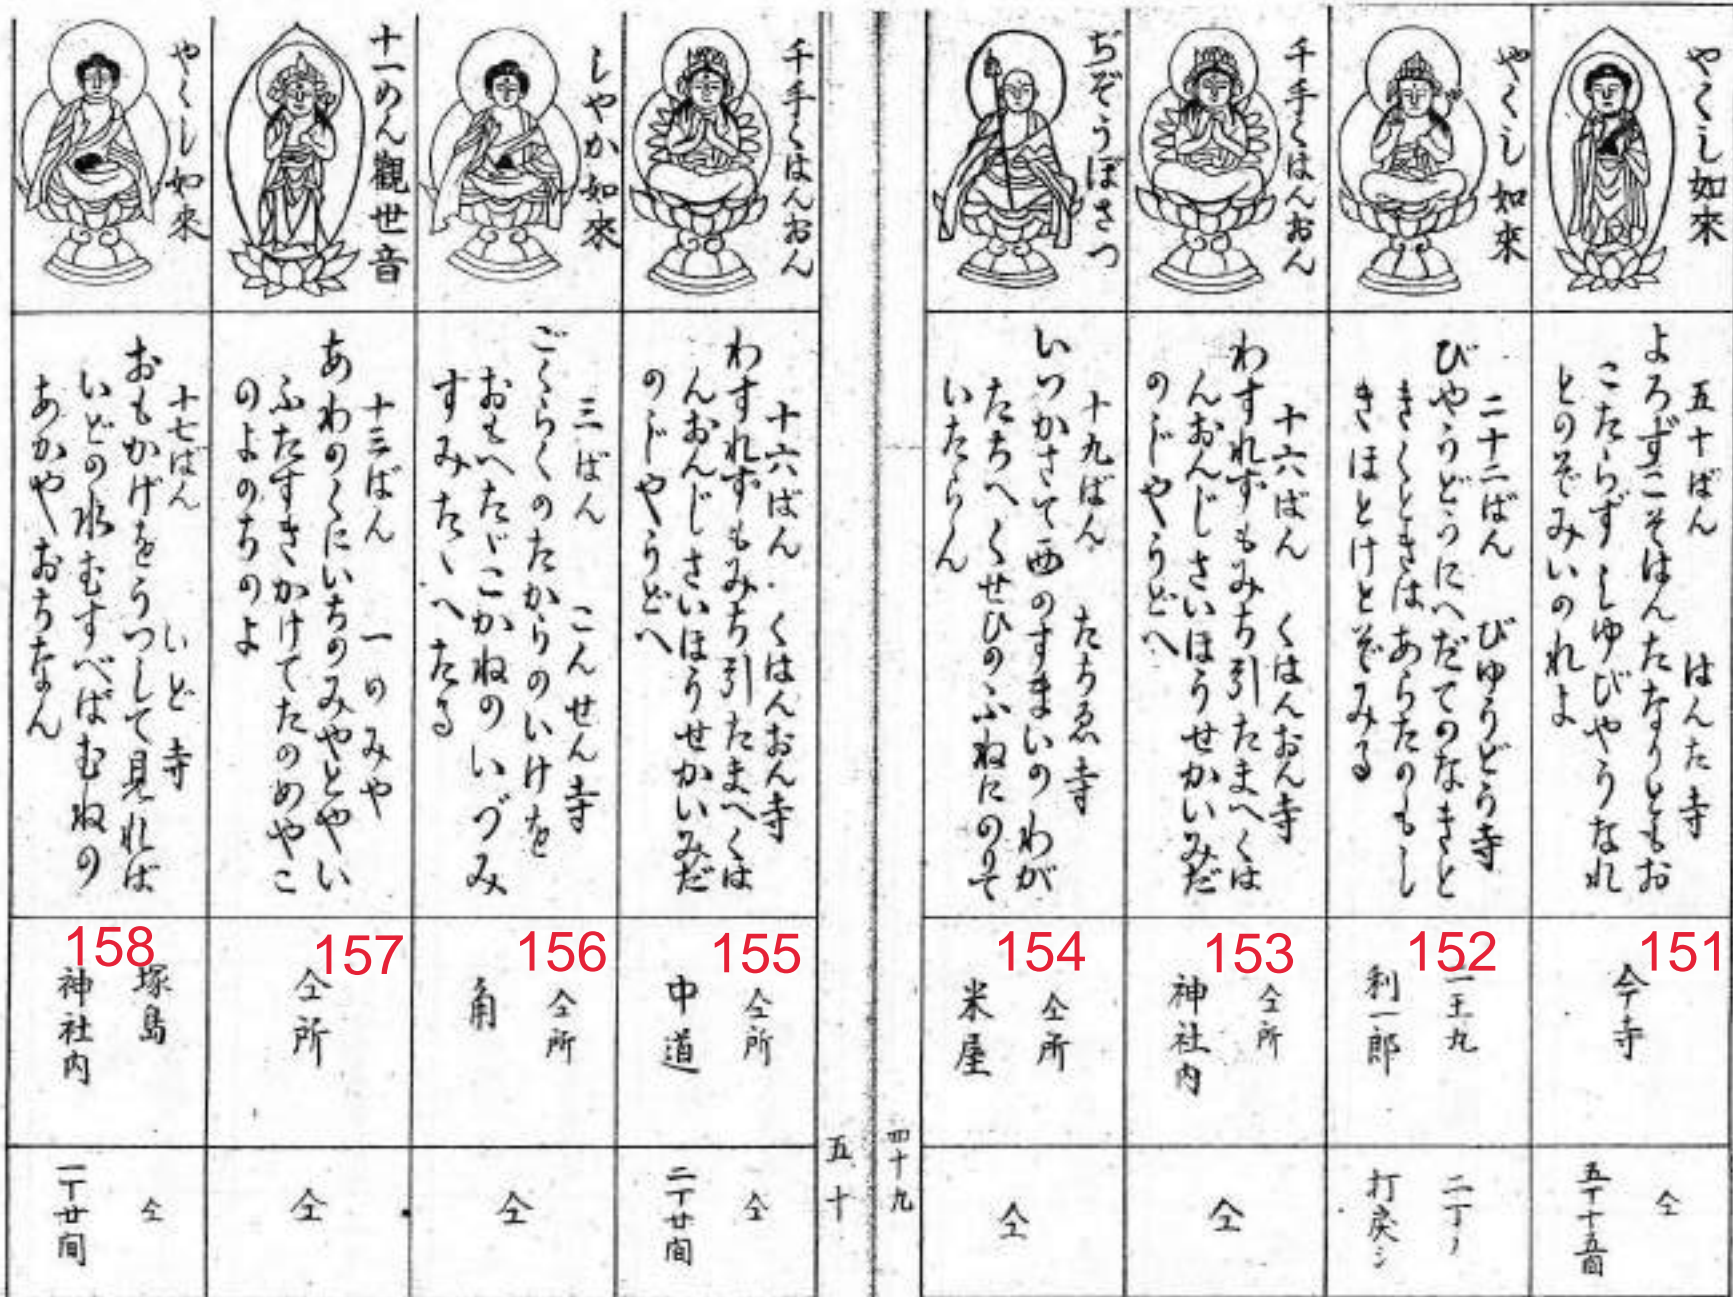 やくし如來
五十ばん　はんた寺
よろずこそはんたなりともお
こたらずしゆびやうなれ
とのぞみいのれよ
151
今寺
仝
五丁十五間
やくし如來
二十二ばん　びゆうどう寺
びやうどうにへだてのなきと
きくときはあらたのもし
きほとけとぞみる
152
一王丸
利一郎
二丁ノ
打戻シ
千手くはんおん
十六ばん　くはんおん寺
わすれずもみち引たまへくは
んおんじさいほうせかいみだ
のじやうどへ
153
仝所
神社内
仝
ぢぞうぼさつ
十九ばん　たちゑ寺
いつかさて西のすまいのわが
たちへくせひのふねにのりて
いたらん
154
仝所
米屋
仝
四十九
五十
千手くはんおん
十六ばん　くはんおん寺
わすれずもみち引たまへくは
んおんじさいほうせかいみだ
のじやうどへ
155
仝所
中道
仝
二丁廿間
しやか如來
三ばん　こんせん寺
ごくらくのたからのいけを
おもへたゞこかねのいづみ
すみたゝへたる
156
仝所
角
仝
十一めん觀世音
十三ばん　一のみや
あわのくにいちのみやとやい
ふたすきかけてたのめやこ
のよのちのよ
157
仝所
仝
やくし如來
十七ばん　いど寺
おもかげをうつして見れば
いどの水むすべばむねの
あかやおちなん
158
塚島
神社内
仝
一丁廿間